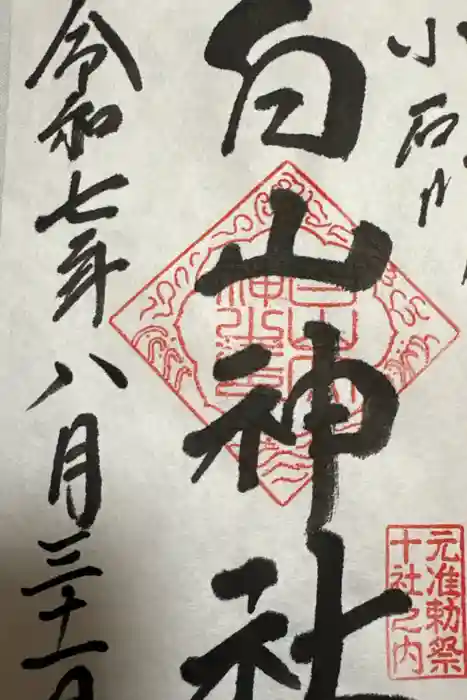 小石川
白山神社
令和七年八月三十一日
元准勅祭
十社之内